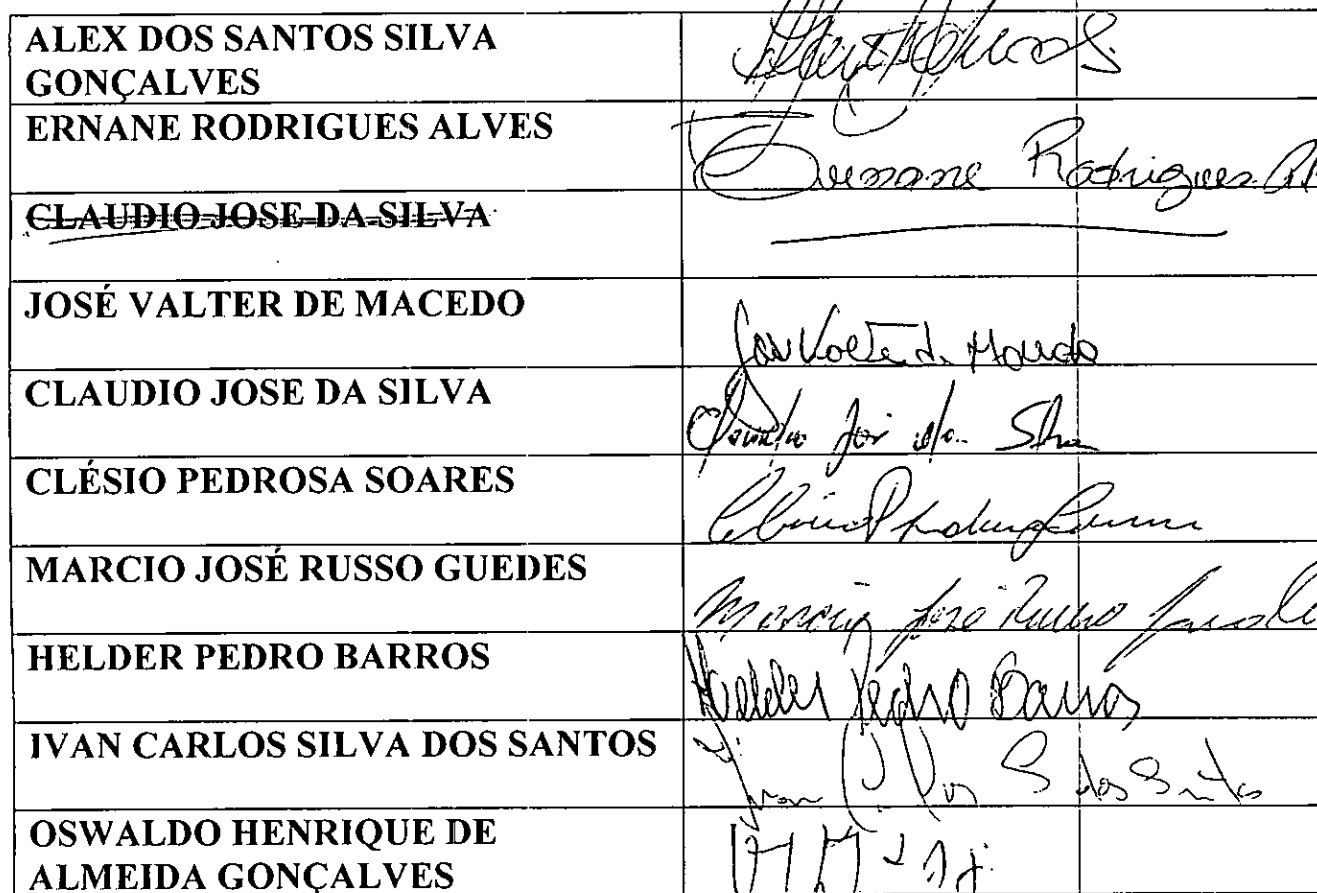 ALEX DOS SANTOS SILVA
GONÇALVES
ERNANE RODRIGUES ALVES
Ernane Rodrigues
CLAUDIO JOSE DA SILVA
JOSÉ VALTER DE MACEDO
CLAUDIO JOSE DA SILVA
Claudio José da Silva
CLÉSIO PEDROSA SOARES
MARCIO JOSÉ RUSSO GUEDES
Marcio José Russo
HELDER PEDRO BARROS
Helder Pedro Barros
IVAN CARLOS SILVA DOS SANTOS
Ivan
OSWALDO HENRIQUE DE
ALMEIDA GONÇALVES